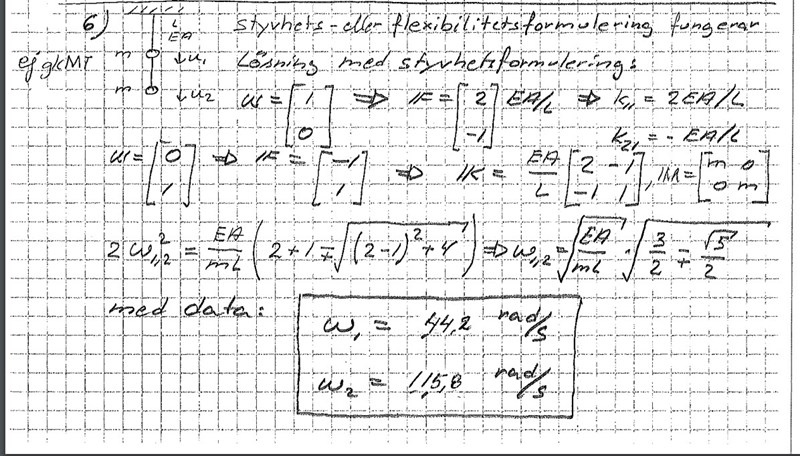 6) L styvhets- eller flexibilitetsformulering fungerar
EA
ej gkMT m ↓u₁ Lösning med styvhetsformulering:
m ↓u₂ u = [1 0] ⇒ F = [2 -1] EA/L ⇒ k₁₁ = 2EA/L
k₂₁ = - EA/L
u = [0 1] ⇒ F = [-1 1] ⇒ K = EA/L [2 -1 -1 1], M = [m 0 0 m]
2ω²₁,₂ = EA/mL (2+1 ∓ √((2-1)² + 4)) ⇒ ω₁,₂ = √(EA/mL) · √(3/2 ∓ √5/2)
med data:
ω₁ = 44,2 rad/s
ω₂ = 115,8 rad/s